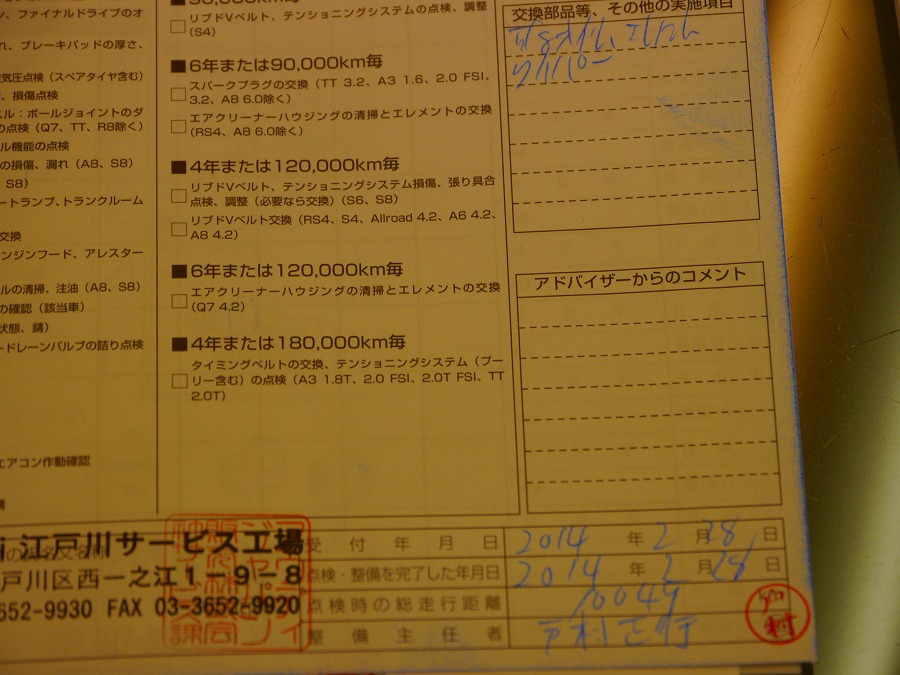 、ファイナルドライブのオ
れ、ブレーキパッドの厚さ、
気圧点検（スペアタイヤ含む）
、損傷点検
スル：ボールジョイントのダ
の点検（Q7、TT、R8除く）
ル機能の点検
の損傷、漏れ（A8、S8）
S8）
ートランプ、トランクルーム
交換
ンジンフード、アレスター
ルの清掃、注油（A8、S8）
の確認（該当車）
状態、錆）
ードレーンバルブの詰り点検
エアコン作動確認
90,000km毎
□ リブドVベルト、テンショニングシステムの点検、調整
（S4）
■ 6年または90,000km毎
□ スパークプラグの交換（TT 3.2、A3 1.6、2.0 FSI、
3.2、A8 6.0除く）
□ エアクリーナーハウジングの清掃とエレメントの交換
（RS4、A8 6.0除く）
■ 4年または120,000km毎
□ リブドVベルト、テンショニングシステム損傷、張り具合
点検、調整（必要なら交換）（S6、S8）
□ リブドVベルト交換（RS4、S4、Allroad 4.2、A6 4.2、
A8 4.2）
■ 6年または120,000km毎
□ エアクリーナーハウジングの清掃とエレメントの交換
（Q7 4.2）
■ 4年または180,000km毎
□ タイミングベルトの交換、テンショニングシステム（プー
リー含む）の点検（A3 1.8T、2.0 FSI、2.0T FSI、TT
2.0T）
交換部品等、その他の実施項目
ワイパー
アドバイザーからのコメント
i 江戸川サービス工場
戸川区西一之江1－9－8
3652-9930 FAX 03-3652-9920
受付年月日 2014 年 2 月 28 日
点検・整備を完了した年月日 2014 年 2 月 28 日
点検時の総走行距離 10049
整備主任者 戸村正行
戸村